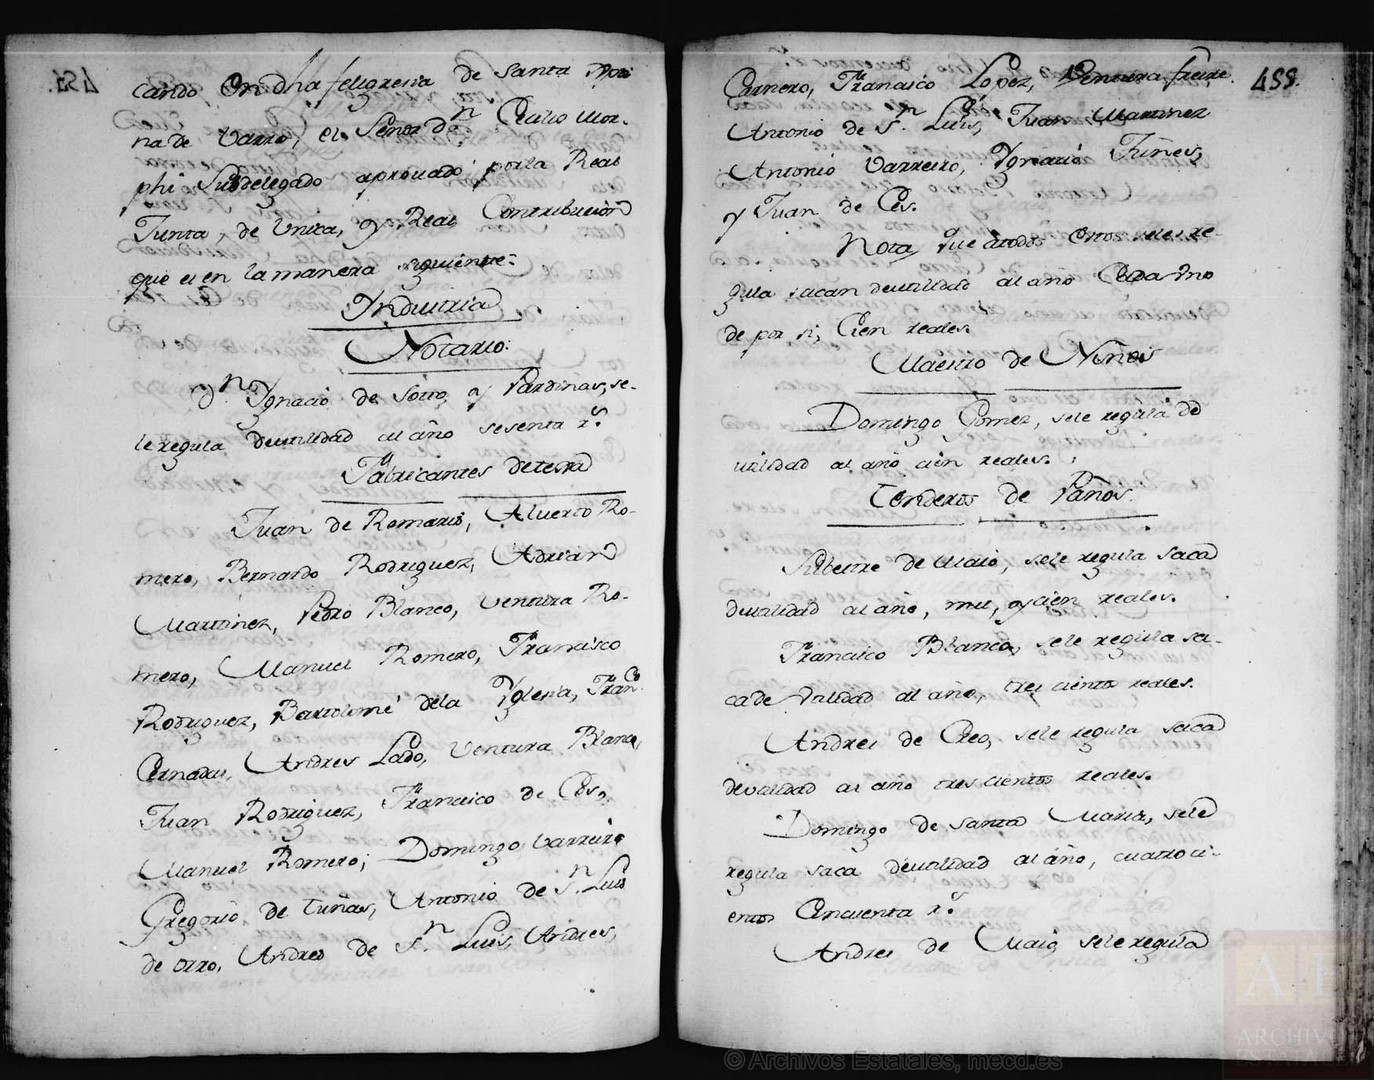 cando en dha feligresia de Santa Mari
na de Varro, el Señor dn. Cecilio Mor-
phi Subdelegado aprovado por la Real
Junta, de Unica, y Real Contribucion
que es en la manera siguiente=
Yndustria
Notario:
Dn. Ygnacio de Soto, y Pardiñas, se-
le regula deutilidad al año sesenta rs.
Fabricantes de tersa
Juan de Romaris, Alverto Ro-
mero, Bernardo Rodriguez, Adrian
Martinez, Pedro Blanco, Ventura Ro-
mero, Manuel Romero, Francisco
Rodriguez, Bartolomé dela Yglesia, Franco.
Cernadas, Andres Lado, Ventura Blanco,
Juan Rodriguez, Francisco de Ces,
Manuel Romero; Domingo Varreiro
Gregorio de Tuñas, Antonio de Sn. Luis
de orro, Andres de Sn. Luis, Andres,
458.
Carnero, Francisco Lopez, Ventura freire.
Antonio de Sn. Luis, Juan Martinez
Antonio Varreiro, Ygnacio Tuñes,
y Juan de Ces.
Nota, que átodos estos seles re-
gula sacan deutilidad al año Cada vno
de por si, Cien reales.
Maestro de Niños
Domingo Gomez, sele regula de
utilidad al año cien reales.
Tenderos de Paños.
Silbestre de Maio, sele regula saca
deutilidad al año, mil, y cien reales.
Francisco Blanco, sele regula sa-
ca de Vtilidad al año, tres cientos reales.
Andres de Creo, sele regula saca
deutilidad al año tres cientos reales.
Domingo de Santa Maria, sele
regula saca deutilidad al año, cuatroci-
entos Cincuenta rs.
Andres de Maio, sele regula
© Archivos Estatales, mecd.es